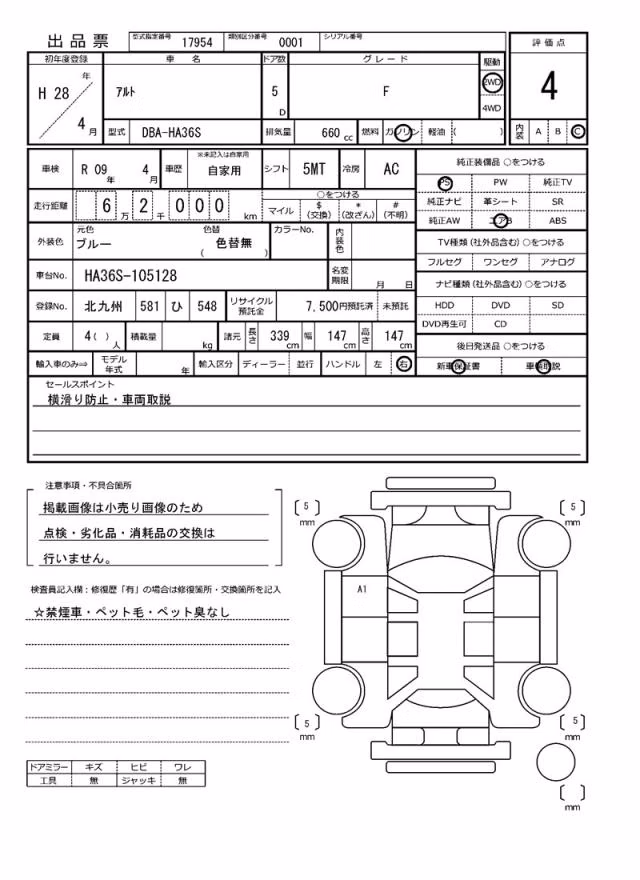 出品票 型式指定番号 17954 類別区分番号 0001 シリアル番号
初年度登録 車名 ドア数 グレード 駆動 評価点
H 28 年 4 月 アルト 5 D F 2WD 4WD 4
型式 DBA-HA36S 排気量 660 cc 燃料 ガソリン 軽油 ( ) 内装 A B C
車検 R 09 年 4 月 車歴 ※未記入は自家用 自家用 シフト 5MT 冷房 AC 純正装備品 ○をつける
PS PW 純正TV
走行距離 6 万 2 千 0 0 0 km ○をつける
マイル $ (交換) * (改ざん) # (不明)
純正ナビ 革シート SR
純正AW エアB ABS
外装色 元色 ブルー 色替 ( 色替無 ) カラーNo. 内装色
TV種類 (社外品含む) ○をつける
フルセグ ワンセグ アナログ
車台No. HA36S-105128 名変期限 月 日
ナビ種類 (社外品含む) ○をつける
登録No. 北九州 581 ひ 548 リサイクル預託金 7,500円預託済 未預託
HDD DVD SD
DVD再生可 CD
定員 4( ) 人 積載量 kg 諸元 長さ 339 cm 幅 147 cm 高さ 147 cm
後日発送品 ○をつける
輸入車のみ⇒ モデル年式 年 輸入区分 ディーラー 並行 ハンドル 左 右
新車保証書 車輌取説
セールスポイント
横滑り防止・車両取説
注意事項・不具合箇所
掲載画像は小売り画像のため
点検・劣化品・消耗品の交換は
行いません。
検査員記入欄：修復歴「有」の場合は修復箇所・交換箇所を記入
☆禁煙車・ペット毛・ペット臭なし
ドアミラー キズ ヒビ ワレ
工具 無 ジャッキ 無
〔 5 〕 mm
〔 5 〕 mm
A1
〔 5 〕 mm
〔 5 〕 mm
〔 〕 mm